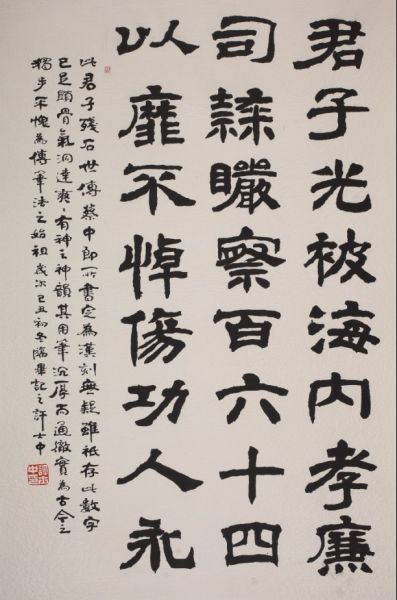 君子光被海内孝廉
司隸察百六十四
以靡不悼傷功人永
此君子殘石世傳蔡中郎所書定為漢刻無疑雖祗存此數字
已足顯骨氣洞達爽爽有神之神韻其用筆沉厚通徹實為古今之
獨步不愧為傳筆法之始祖歲次己丑初冬臨畢記之許士中